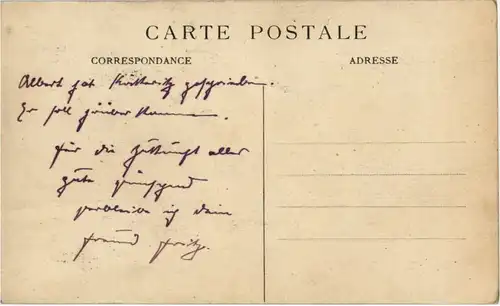 CARTE POSTALE
CORRESPONDANCE
ADRESSE
Albert hat geschrieben.
Er soll
für die Zukunft alles
gute wünschend
verbleibe ich dein
Freund Fritz.